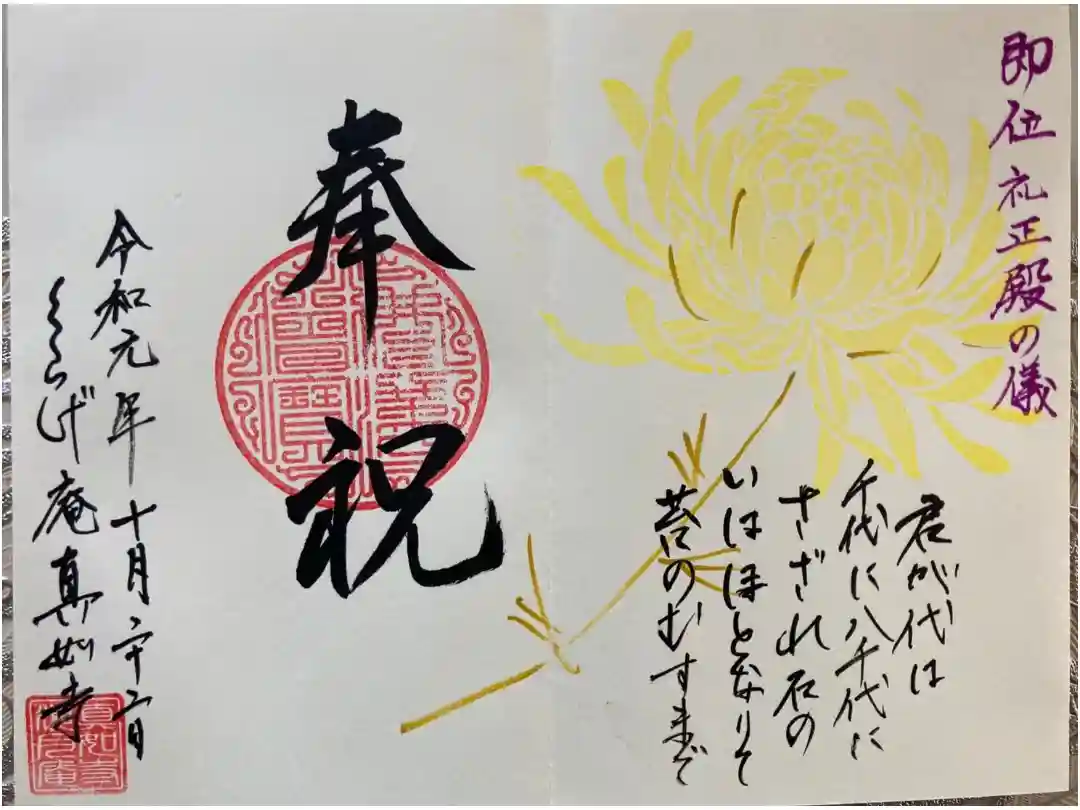 即位礼正殿の儀
君が代は
千代に八千代に
さざれ石の
いはほとなりて
苔のむすまで
奉祝
令和元年十月二十二日
くらげ庵真如寺